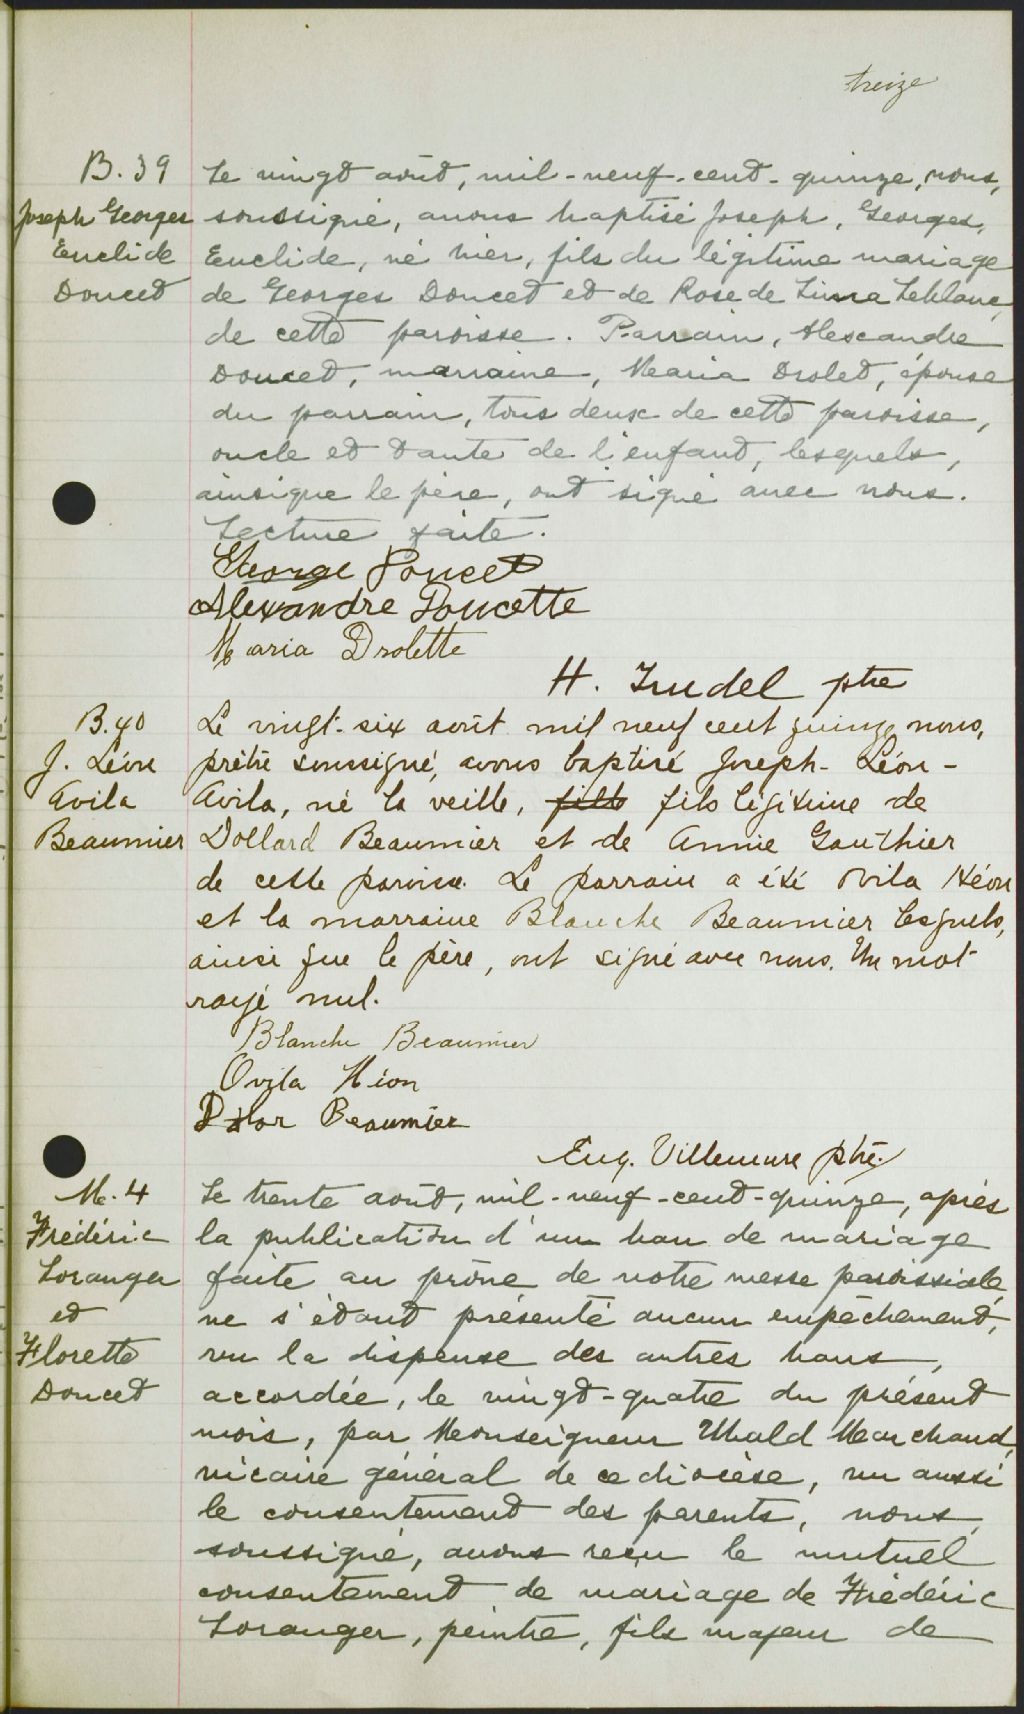 treize
B. 39
Joseph Georges
Euclide
Doucet
Le vingt août, mil-neuf-cent-quinze, nous,
soussigné, avons baptisé Joseph, Georges,
Euclide, né hier, fils du légitime mariage
de Georges Doucet et de Rose de Lima Leblanc,
de cette paroisse. Parrain, Alexandre
Doucet, marraine, Maria Drolet, épouse
du parrain, tous deux de cette paroisse,
oncle et tante de l'enfant, lesquels,
ainsique le père, ont signé avec nous.
Lecture faite.
George Doucet
Alexandre Doucette
Maria Drolette
H. Trudel ptre
B. 40
J. Léon
Avila
Beaumier
Le vingt-six août mil neuf cent quinze nous,
prêtre soussigné, avons baptisé Joseph-Léon-
Avila, né la veille, fils fils légitime de
Dollard Beaumier et de Annie Gauthier
de cette paroisse. Le parrain a été Ovila Héon
et la marraine Blanche Beaumier lesquels,
ainsi que le père, ont signé avec nous. Un mot
rayé nul.
Blanche Beaumier
Ovila Héon
Dolor Beaumier
Eug. Villemure ptre.
M. 4
Frédéric
Loranger
et
Florette
Doucet
Le trente août, mil-neuf-cent-quinze, après
la publication d'un ban de mariage
faite au prône de notre messe paroissiale,
ne s'étant présenté aucun empêchement,
vu la dispense des autres bans,
accordée, le vingt-quatre du présent
mois, par Monseigneur Ubald Marchand,
vicaire général de ce diocèse, vu aussi
le consentement des parents, nous,
soussigné, avons reçu le mutuel
consentement de mariage de Frédéric
Loranger, peintre, fils majeur de